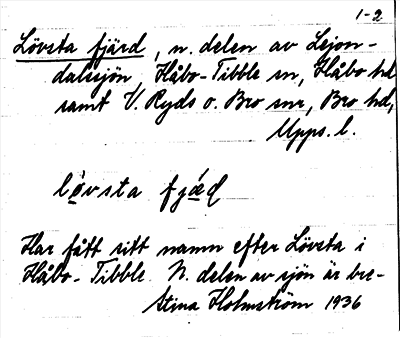 1-2
Lövsta fjärd, n. delen av Lejon-
dalssjön, Håbo-Tibble sn, Håbo hd
samt V. Ryds o. Bro snr, Bro hd,
Upps. l.
lövsta fjæd
Har fått sitt namn efter Lövsta i
Håbo-Tibble. N. delen av sjön är bre-
Stina Holmström 1936